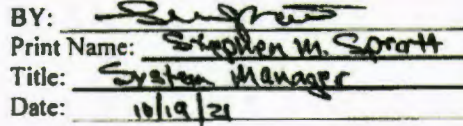 BY:
Print Name: Stephen M. Spratt
Title: System Manager
Date: 10/19/21